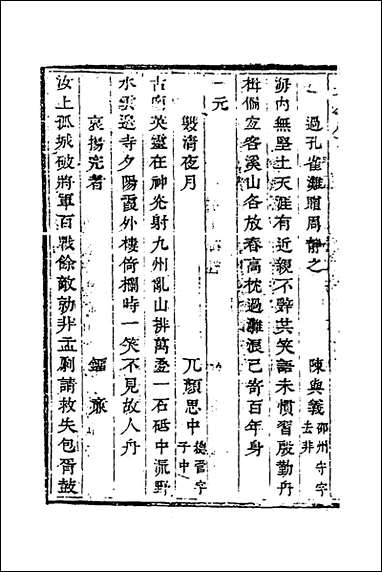 過孔雀灘贈周靜之 陳與義 邵州守字去非
海内無堅土天涯有近親不辭共笑語未慣習殷勤舟
楫偏宜客溪山各放春高枕過灘浪已寄百年身
元
齋夜月 兀顏思中 總管字子中
古廟英靈在神光射九州亂山排萬壑一石砥中流野
水雲邊寺夕陽霞外樓倚欄時一笑不見故人舟
哀楊完者 鎦
汝上孤城破將軍百戰餘敵勍非孟剛請救失包胥鼓